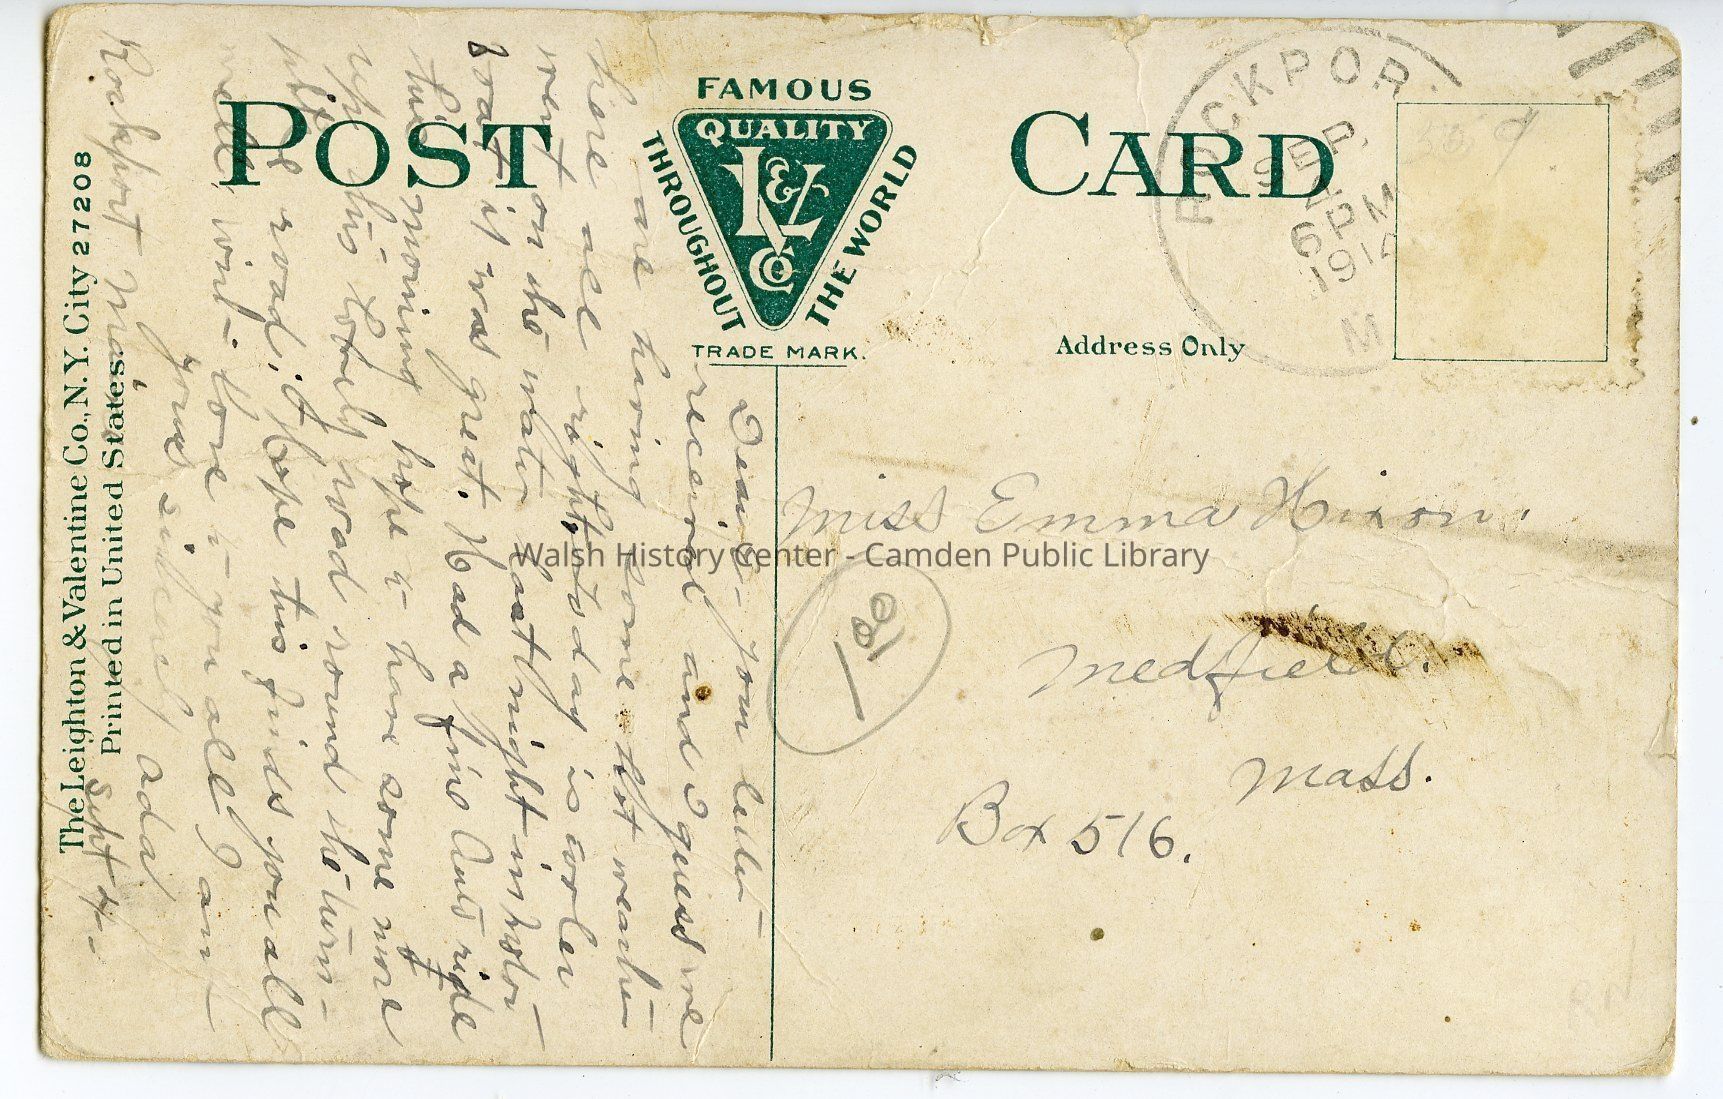 POST CARD
FAMOUS
QUALITY
L&V
Co
THROUGHOUT
THE WORLD
TRADE MARK.
ROCKPOR
SEP
6 PM
191
M
Address Only
The Leighton & Valentine Co., N.Y. City 27208
Printed in United States.
Rockport Sept 4 -
Dear E - your letter
received and I guess we
are having some Hot weather
here all right, to day is cooler
went on the water Last night in motor
Boat it was great. Had a fine Auto ride
this morning hope to have some more
up this lovely road round the turn
of the road. Hope this finds you all
well, with love to you all I am
yours sincerely Ada
Miss Emma Hixon.
Medfield.
Mass.
Box 516.
Walsh History Center - Camden Public Library